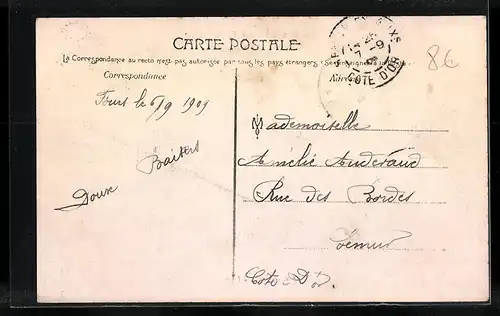 CARTE POSTALE
La Correspondance au recto n'est pas autorisée par tous les pays étrangers (Se renseigner à la
Correspondance
Adresse
COTE D'OR
86
Tours le 6/9 1909
Baisers
Doux
Mademoiselle
Amélie Auderaud
Rue des Bordes
Semur
Cote D'or